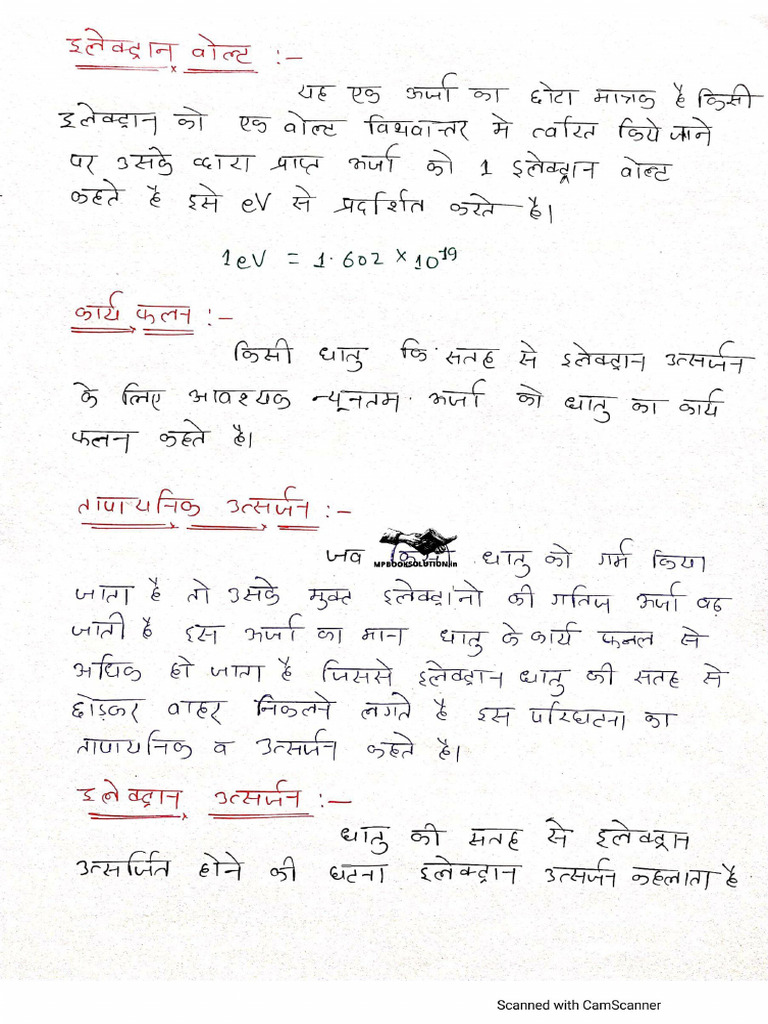 इलेक्ट्रान वोल्ट :-
यह एक ऊर्जा का छोटा मात्रक है किसी
इलेक्ट्रान को एक वोल्ट विभवान्तर मे त्वरित किये जाने
पर उसके द्वारा प्राप्त ऊर्जा को 1 इलेक्ट्रान वोल्ट
कहते है इसे eV से प्रदर्शित करते है।
1eV = 1.602 × 10¹⁹
कार्य फलन :-
किसी धातु कि सतह से इलेक्ट्रान उत्सर्जन
के लिए आवश्यक न्यूनतम ऊर्जा को धातु का कार्य
फलन कहते है।
तापायनिक उत्सर्जन :-
जब किसी धातु को गर्म किया
MPBOOKSOLUTION.in
जाता है तो उसके मुक्त इलेक्ट्रानो की गतिज ऊर्जा बढ़
जाती है इस ऊर्जा का मान धातु के कार्य फनल से
अधिक हो जाता है जिससे इलेक्ट्रान धातु की सतह से
छोड़कर बाहर निकलने लगते है इस परिघटना का
तापायनिक व उत्सर्जन कहते है।
इलेक्ट्रान उत्सर्जन :-
धातु की सतह से इलेक्ट्रान
उत्सर्जित होने की घटना इलेक्ट्रान उत्सर्जन कहलाता है
Scanned with CamScanner